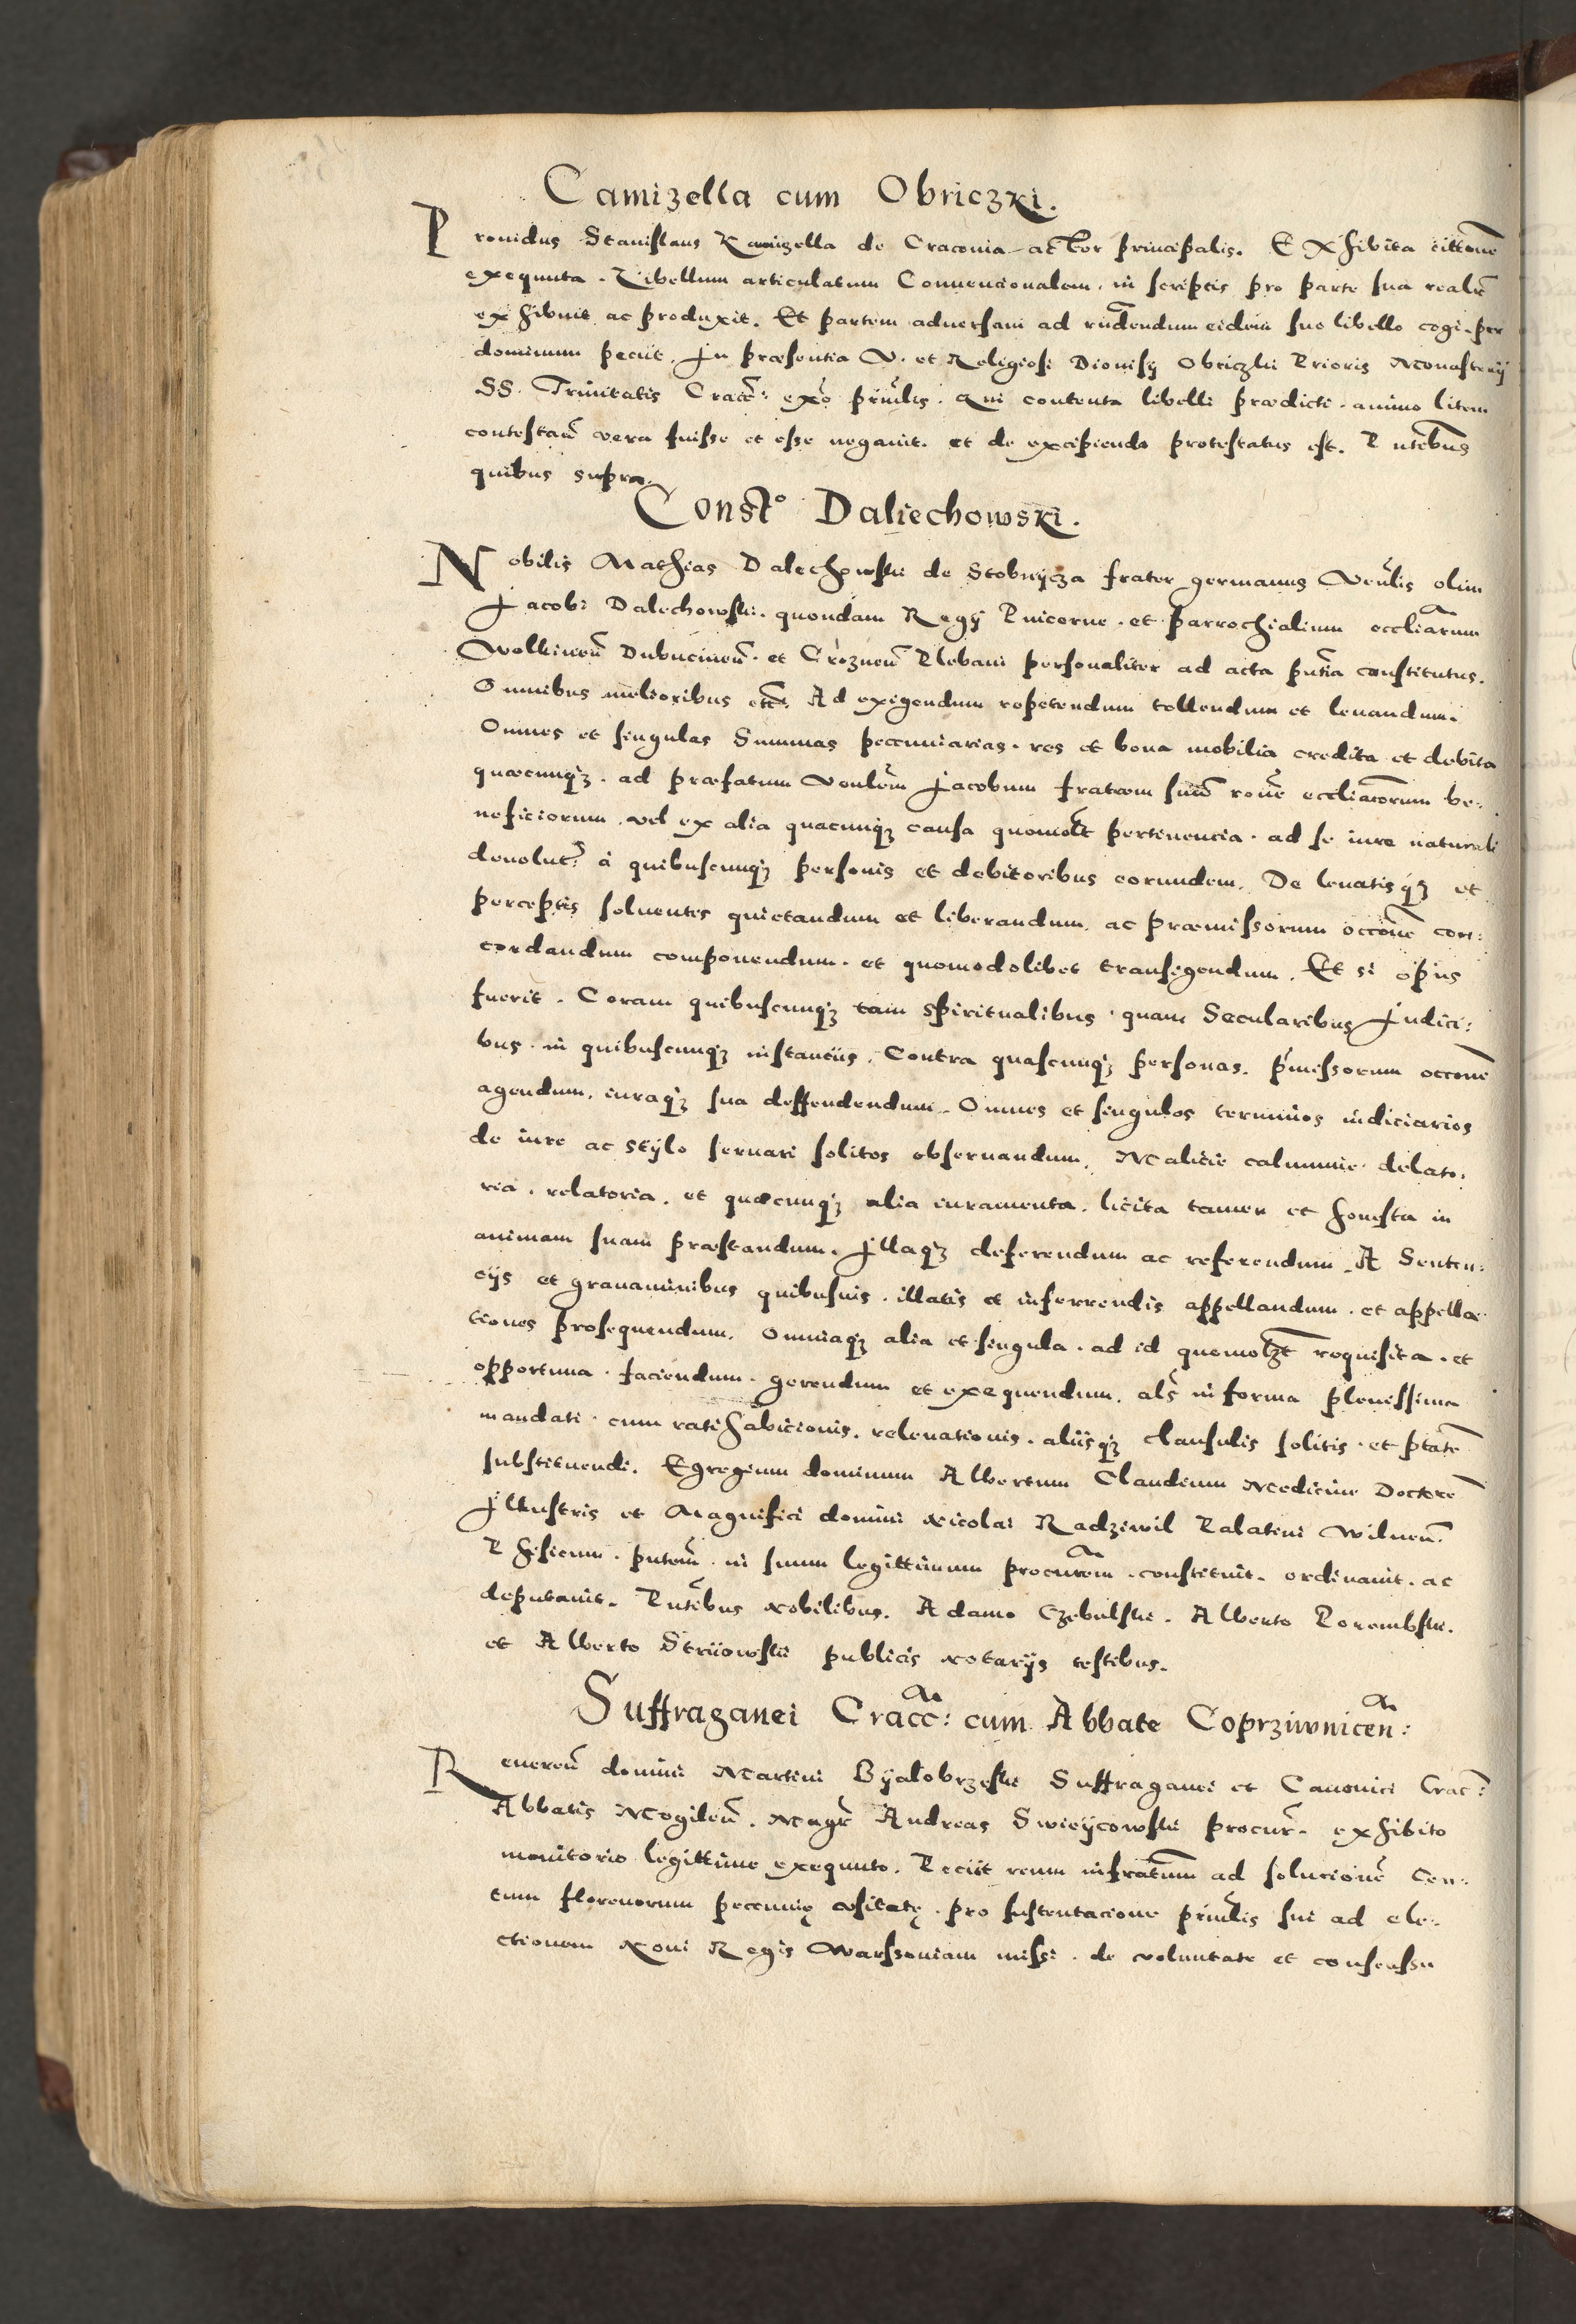 Camizella cum Obriczki.
Prouidus Stanislaus Kamizella de Cracouia actor principalis. Exhibita cittone
exequuta. Libellum articulatum Conuencionalem. in scriptis pro parte sua realr
exhibuit ac produxit. Et partem aduersam ad rndendum eidem suo libello cogi per
dominum peciit. In præsentia V. et Religiosi Dionisij Obriczki Prioris Monasterij
SS. Trinitatis Cracc: exo priulis. Qui contenta libelli prædicti. animo litem
contestan vera fuisse et esse negauit. et de excipiendo protestatus est. Pntebus
quibus supra.
Consto Daliechowski.
Nobilis Mathias Dalechowski de Stobnijcza frater germanus Venlis olim
Jacobi Dalechowski. quondam Regij Puicerne. et parrochialium eccliarum
Wolbinen Dubincinen. et Croznen Plebani personaliter ad acta pntia constitutus.
Omnibus melioribus etc. Ad exigendum repetendum tollendum et leuandum.
Omnes et singulas Summas peccuniarias. res et bona mobilia credita et debita
quæcunqz. ad præfatum Venlem Jacobum fratrem suum rone eccliaticorum be:
neficiorum. vel ex alia quacunqz causa quomolt pertinencia. ad se iure naturali
deuolut: à quibuscunqz personis et debitoribus eorundem. De leuatisqz et
perceptis soluentes quietandum et liberandum. ac præmissorum occone con:
cordandum componendum. et quomodolibet transigendum. Et si opus
fuerit. Coram quibuscunqz tam spiritualibus. quam Secularibus Judici:
bus. in quibuscunqz instantiis. Contra quascunqz personas. pmissorum occone
agendum. iuraqz sua deffendendum. Omnes et singulos terminos iudiciarios
de iure ac stijlo seruari solitos obseruandum. Malicie calumnie delato,
ria. relatoria. et quæcunqz alia iuramenta. licita tamen et honesta in
animam suam præstandum. Illaqz deferendum ac referendum. A Senten:
cijs et grauaminibus quibusuis. illatis et inferrendis appellandum. et appella:
tiones prosequendum. Omniaqz alia et singula. ad id quomolzt requisita. et
opportuna. faciendum. gerendum et exequendum. als in forma plenissima
mandati. cum ratihabicionis. releuationis. aliisqz clausulis solitis. et ptate
substituendi. Egregium dominum Albertum Claudium Medicine Doctore
Illustris et Magnifici domini Nicolai Radziwil Palatini Wilnen.
Phisicum. pntem. in suum legittimum procurem. constituit. ordinauit. ac
deputauit. Pntebus Nobilibus. Adamo Czebulski. Alberto Porembski.
et Alberto Strijowski publicis Notarijs testibus.
Suffraganei Cracc: cum Abbate Coprziwnicen:
Reueren domini Martini Byalobrzeski Suffraganei et Canonici Crac:
Abbatis Mogilen. Magr Andreas Swieijcowski procur. exhibito
monitorio legittime exequuto. Peciit reum infratum ad solucione Cen:
tum florenorum peccunię vsitatę. pro sustentacione priulis sui ad ele:
ctionem Noui Regis Warssouiam missi. de voluntate et consensu